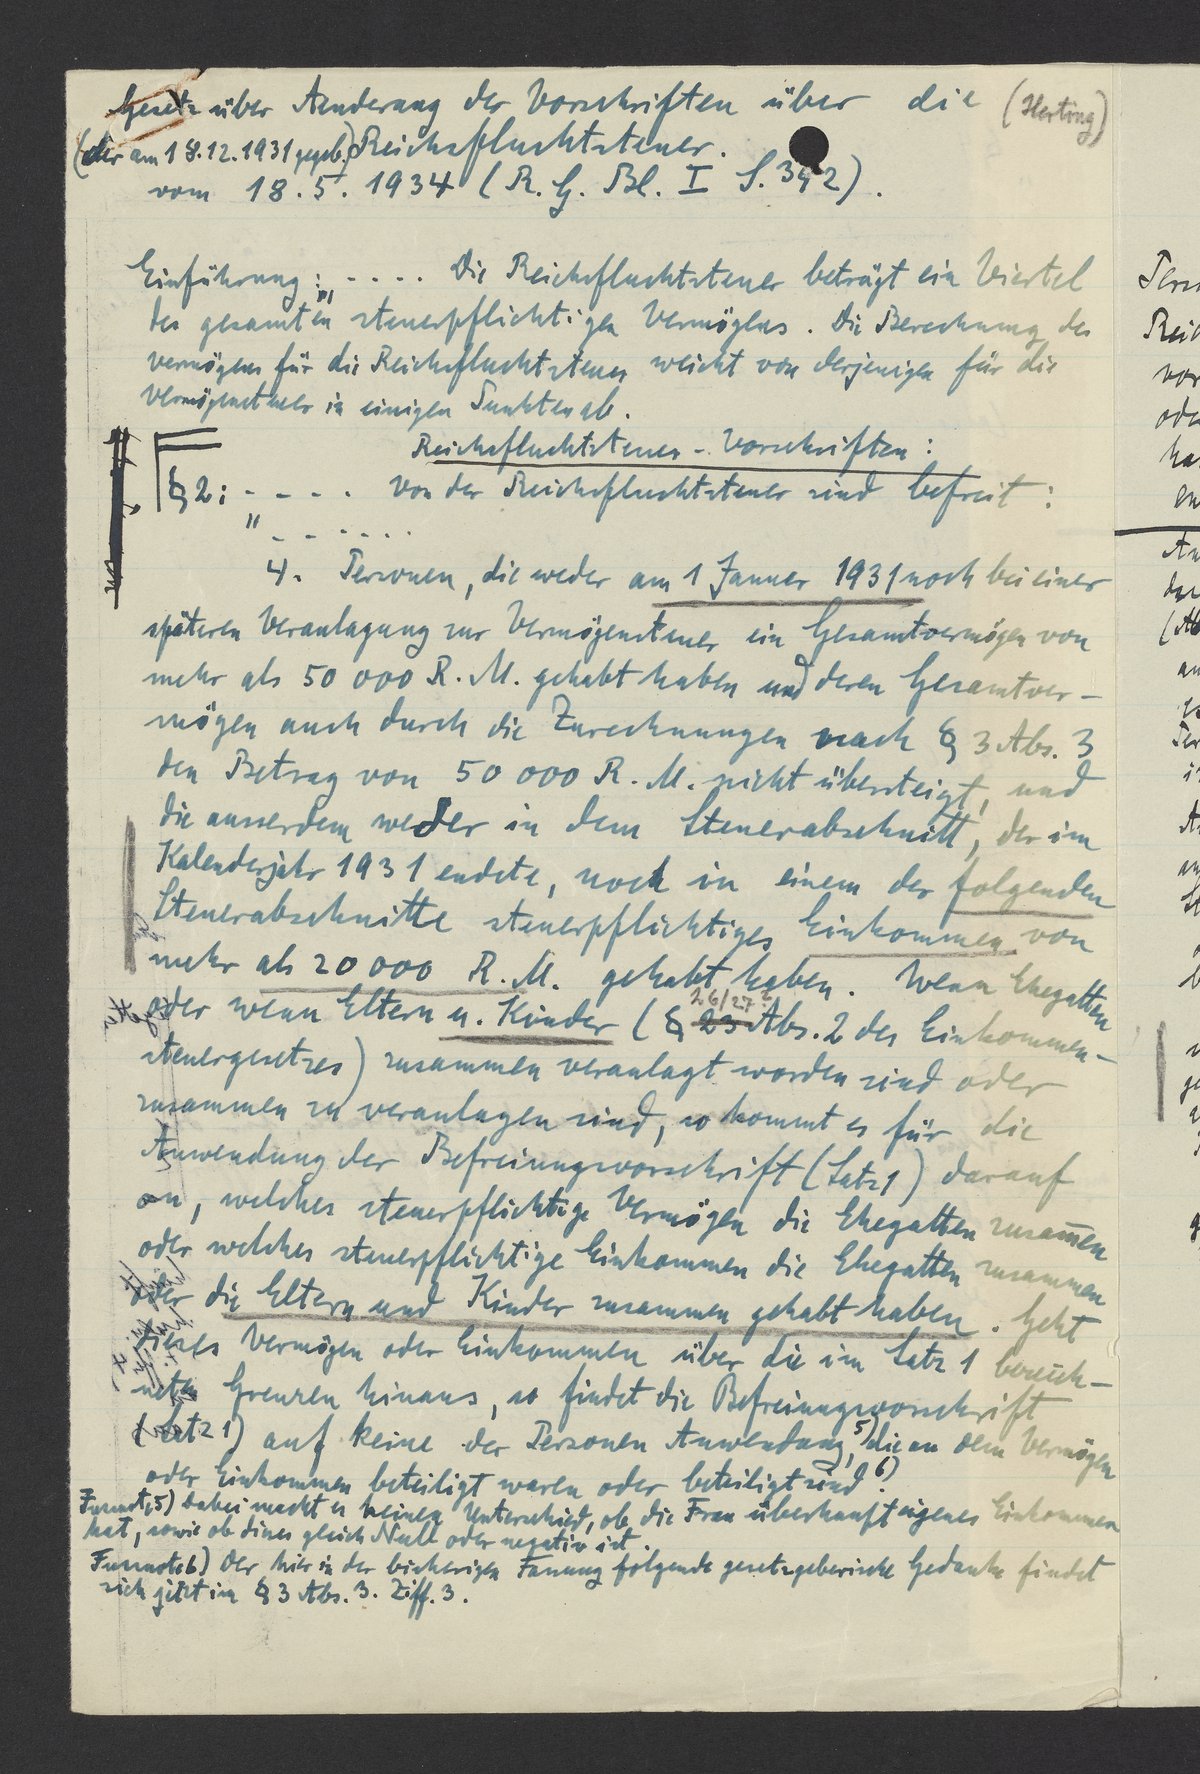 Gesetz über Aenderung der Vorschriften über die (Herting)
(der am 18.12.1931 gegeb.) Reichsfluchtsteuer.
vom 18.5.1934 (R.G.Bl. I S.392).
Einführung: „ . . . . Die Reichsfluchtsteuer beträgt ein Viertel
des gesamten steuerpflichtigen Vermögens. Die Berechnung des
Vermögens für die Reichsfluchtsteuer weicht von derjenigen für die
Vermögensteuer in einigen Punkten ab.
Reichsfluchtsteuer-Vorschriften:
§ 2: - - - . Von der Reichsfluchtsteuer sind befreit:
" - - - . . . .
4. Personen, die weder am 1 Januar 1931 noch bei einer
späteren Veranlagung zur Vermögensteuer ein Gesamtvermögen von
mehr als 50 000 R.M. gehabt haben und deren Gesamtver-
mögen auch durch die Zurechnungen nach § 3 Abs. 3
den Betrag von 50 000 R.M. nicht übersteigt, und
die ausserdem weder in dem Steuerabschnitt, der im
Kalenderjahr 1931 endete, noch in einem der folgenden
Steuerabschnitte steuerpflichtiges Einkommen von
mehr als 20 000 R.M. gehabt haben. Wenn Ehegatten
26/27?
oder wenn Eltern u. Kinder (§ 23 Abs. 2 des Einkommen-
steuergesetzes) zusammen veranlagt worden sind oder
zusammen zu veranlagen sind, so kommt es für die
Anwendung der Befreiungsvorschrift (Satz 1) darauf
an, welches steuerpflichtige Vermögen die Ehegatten zusam̅en
oder welches steuerpflichtige Einkommen die Ehegatten zusammen
oder die Eltern und Kinder zusammen gehabt haben. Geht
dieses Vermögen oder Einkommen über die im Satz 1 bezeich-
neten Grenzen hinaus, so findet die Befreiungsvorschrift
(Satz 1) auf keine der Personen Anwendung,5) die an dem Vermögen
oder Einkommen beteiligt waren oder beteiligt sind.6)
Fussnote 5) Dabei macht es keinen Unterschied, ob die Frau überhaupt eigenes Einkommen
hat, sowie ob dieses gleich Null oder negativ ist.
Fussnote 6) Der hier in der bisherigen Fassung folgende gesetzgeberische Gedanke findet
sich jetzt im § 3 Abs. 3. Ziff. 3.